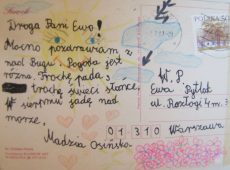 Droga Pani Ewo!
Mocno pozdrawiam z
nad Bugu. Pogoda jest
różna. Trochę pada,
trochę świeci słońce.
W sierpniu jadę nad
morze.
Madzia Osińska
POLSKA
W.P.
Ewa Pytlak
ul. Rozłogi 4 m. 3
01 310 Warszawa